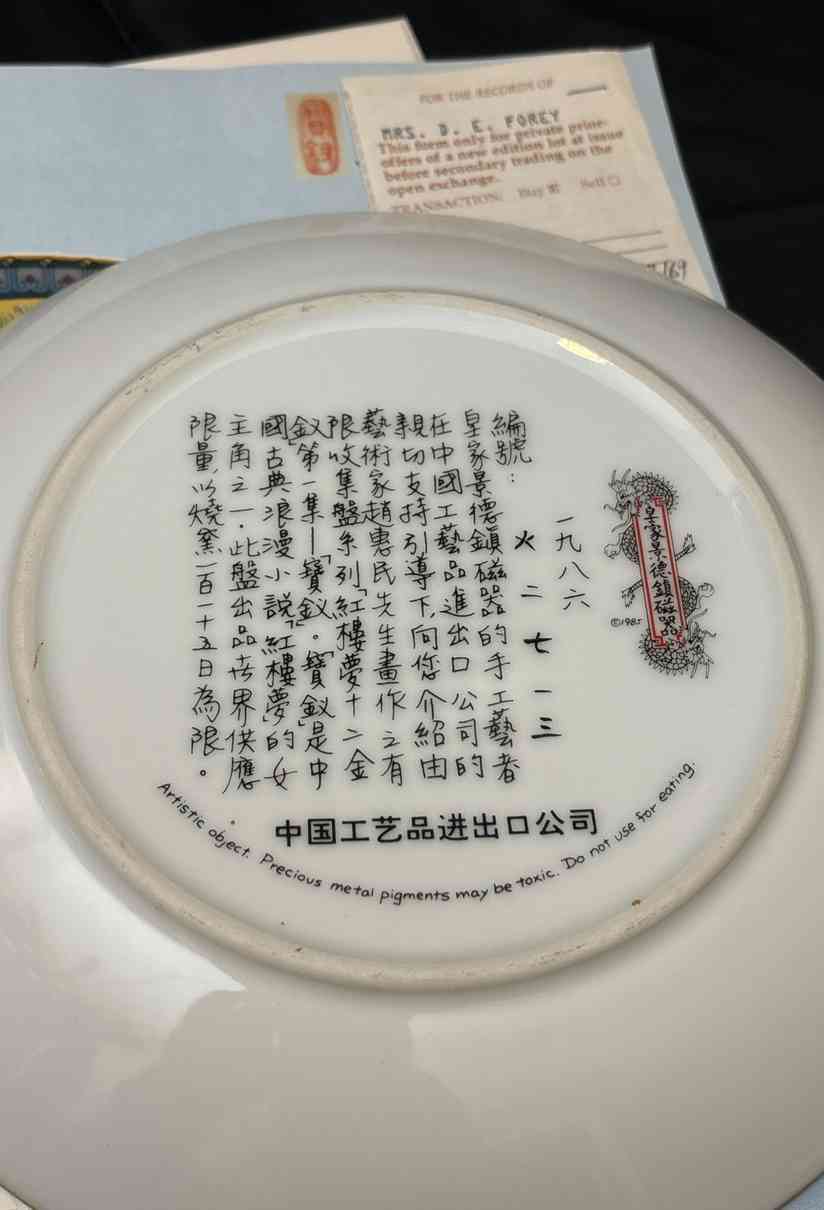 寶釵
FOR THE RECORDS OF
MRS. D. E. FOREY
This form only for private prime-
offers of a new edition lot at issue
before secondary trading on the
open exchange.
TRANSACTION: Buy Sell
皇家景德鎮磁器
©1985
一九八六
編號：火二七一三
皇家景德鎮磁器的手工藝者
在中國工藝品進出口公司的
親切支持引導下，向您介紹由
藝術家趙惠民先生畫作之有
限收集盤系列「紅樓夢十二金
釵」第一集—「寶釵」。「寶釵」是中
國古典浪漫小說「紅樓夢」的女
主角之一。此盤出品世界供應
限量，以燒窯一百一十五日為限。
中国工艺品进出口公司
Artistic object. Precious metal pigments may be toxic. Do not use for eating.